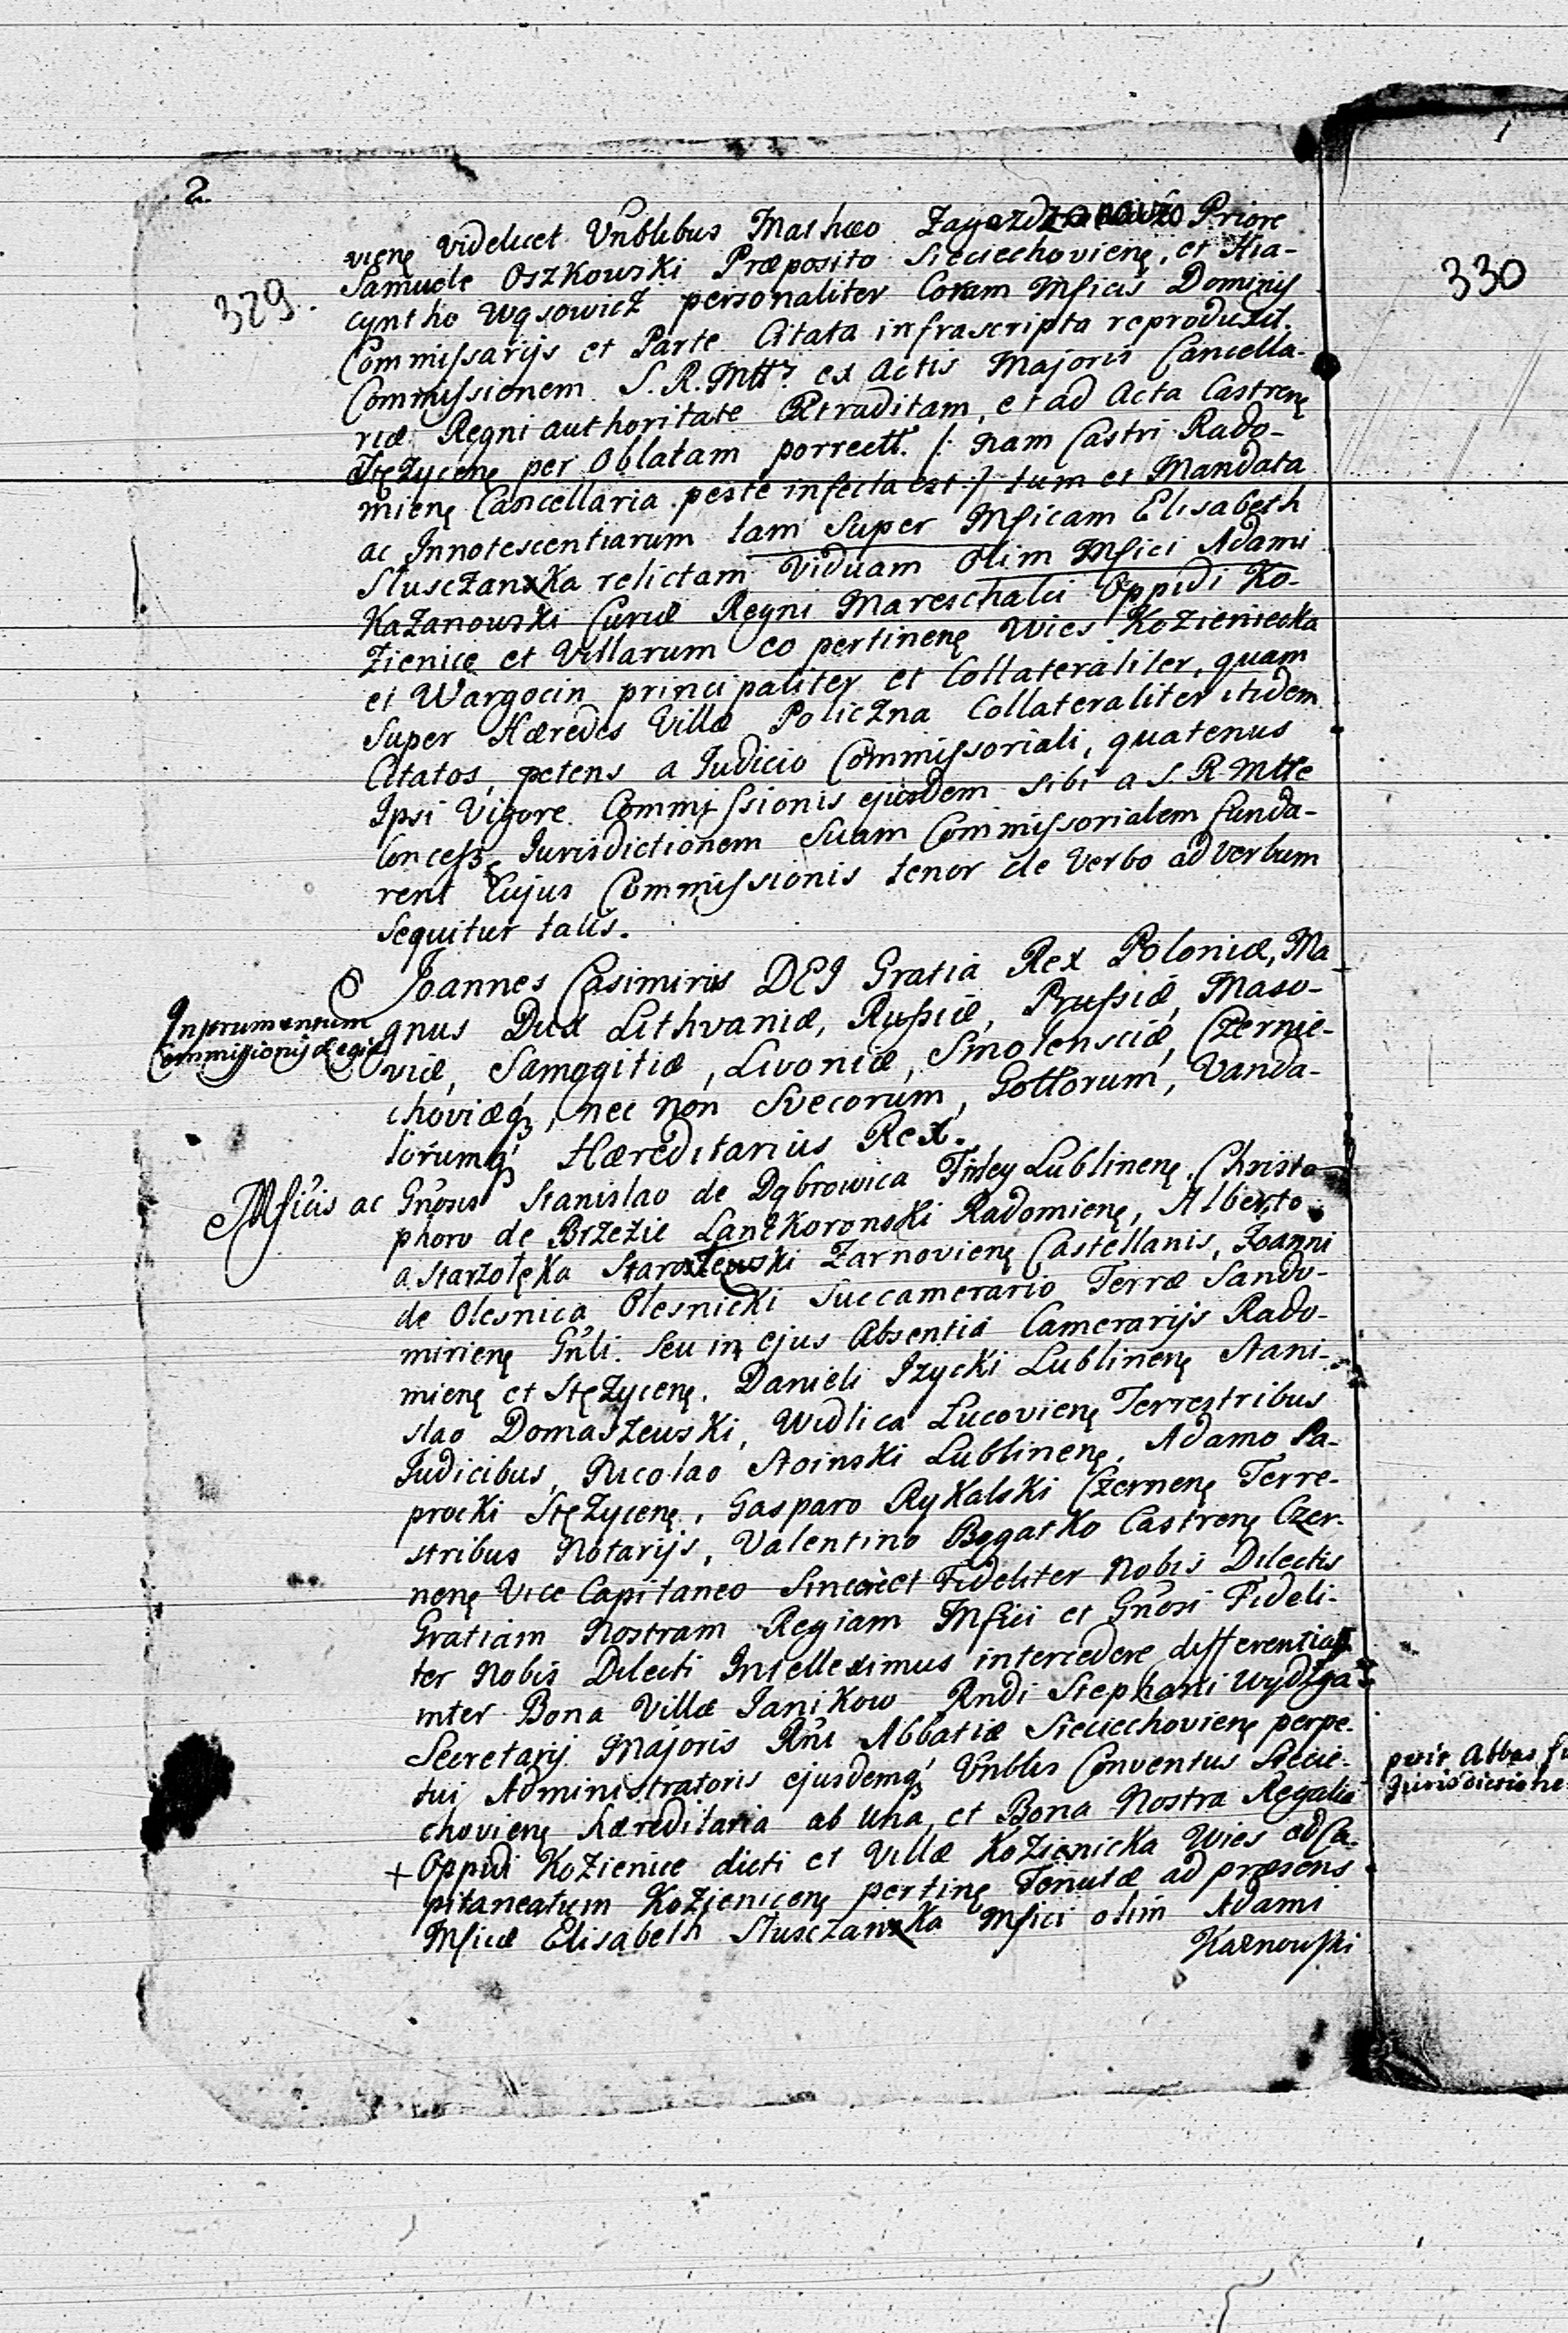 2.
vienę videlicet Vnblibus Mathæo Priore
Samuele Oszkowski Præposito Sieciechovienę, et Hia-
329.
cyntho Wąsowicz personaliter Coram Mficis Dominijs
Commissarijs et Parte Citata infrascripta reproduxit.
Commissionem S. R. Mttis ex Actis Majoris Cancella-
riæ Regni authoritate Extraditam, et ad Acta Castrenę
Stężycenę per Oblatam porrectt. /: nam Castri Rado-
mienę Cancellaria peste infecta est :/ tum et Mandata
ac Innotescentiarum tam Super Mficam Elisabeth
Slusczanxka relictam Viduam Olim Mfici Adami
Kazanowski Curiæ Regni Mareschalci Oppidi Ko-
zienice et Villarum eo pertinenę Wies Kozieniecka
et Wargocin principaliter et Collateraliter, quam
Super Hæredes Villæ Policzna Collateraliter itidem
Citatos, petens a Judicio Commissoriali, quatenus
Ipsi Vigore Commissionis ejusdem sibi a S. R. Mtte
Concessę Jurisdictionem Suam Commissorialem funda-
rent Cujus Commissionis tenor de Verbo ad Verbum
Sequitur talis.
Joannes Casimirus DEI Gratia Rex Poloniæ, Ma
Instrumentum
Commissionis Regiæ
gnus Dux Lithvaniæ, Russiæ, Prussiæ, Maso-
viæ, Samogitiæ, Livoniæ, Smolensciæ, Czernie-
choviæq, nec non Svecorum, Gottorum, Vanda-
lorumq Hæreditarius Rex.
Mficis ac Gnosis Stanislao de Dąbrowica Firley Lublinenę, Christo-
phoro de Brzezie Lanckoronski Radomienę, Alberto
a Starzołęka Starołęwski Zarnovienę Castellanis, Joanni
de Olesnica Olesnicki Succamerario Terræ Sando-
mirienę Gnli. Seu in ejus Absentia Camerarijs Rado-
mienę et Stężycenę. Danieli Izycki Lublinenę Stani-
slao Domaszewski, Widlica Lucovienę Terrestribus
Judicibus, Nicolao Stoinski Lublinenę, Adamo Pa-
procki Stężycenę, Gasparo Rykalski Czernenę Terre-
stribus Notarijs, Valentino Bogatko Castrenę Czer-
nenę Vice Capitaneo Sincere et Fideliter Nobis Dilectis
Gratiam Nostram Regiam Mfici et Gnosi Fideli-
ter Nobis Dilecti Intelleximus intercedere differentias
inter Bona Villæ Janikow Rndi Stephani Wydzga
Secretarij Majoris Rni Abbatiæ Sieciechovienę perpe-
tui Administratoris ejusdemq Vnblis Conventus Siecie-
chovienę hæreditaria ab una, et Bona Nostra Regalia
+ Oppidi Kozienice dicti et Villæ Kozienicka Wies ad Ca-
pitaneatum Kozienicenę pertinę Tenutæ ad præsens
Mficæ Elisabeth Slusczanxka Mfici olim Adami
Kaznowski
330
petit Abbas fu
Jurisdictione